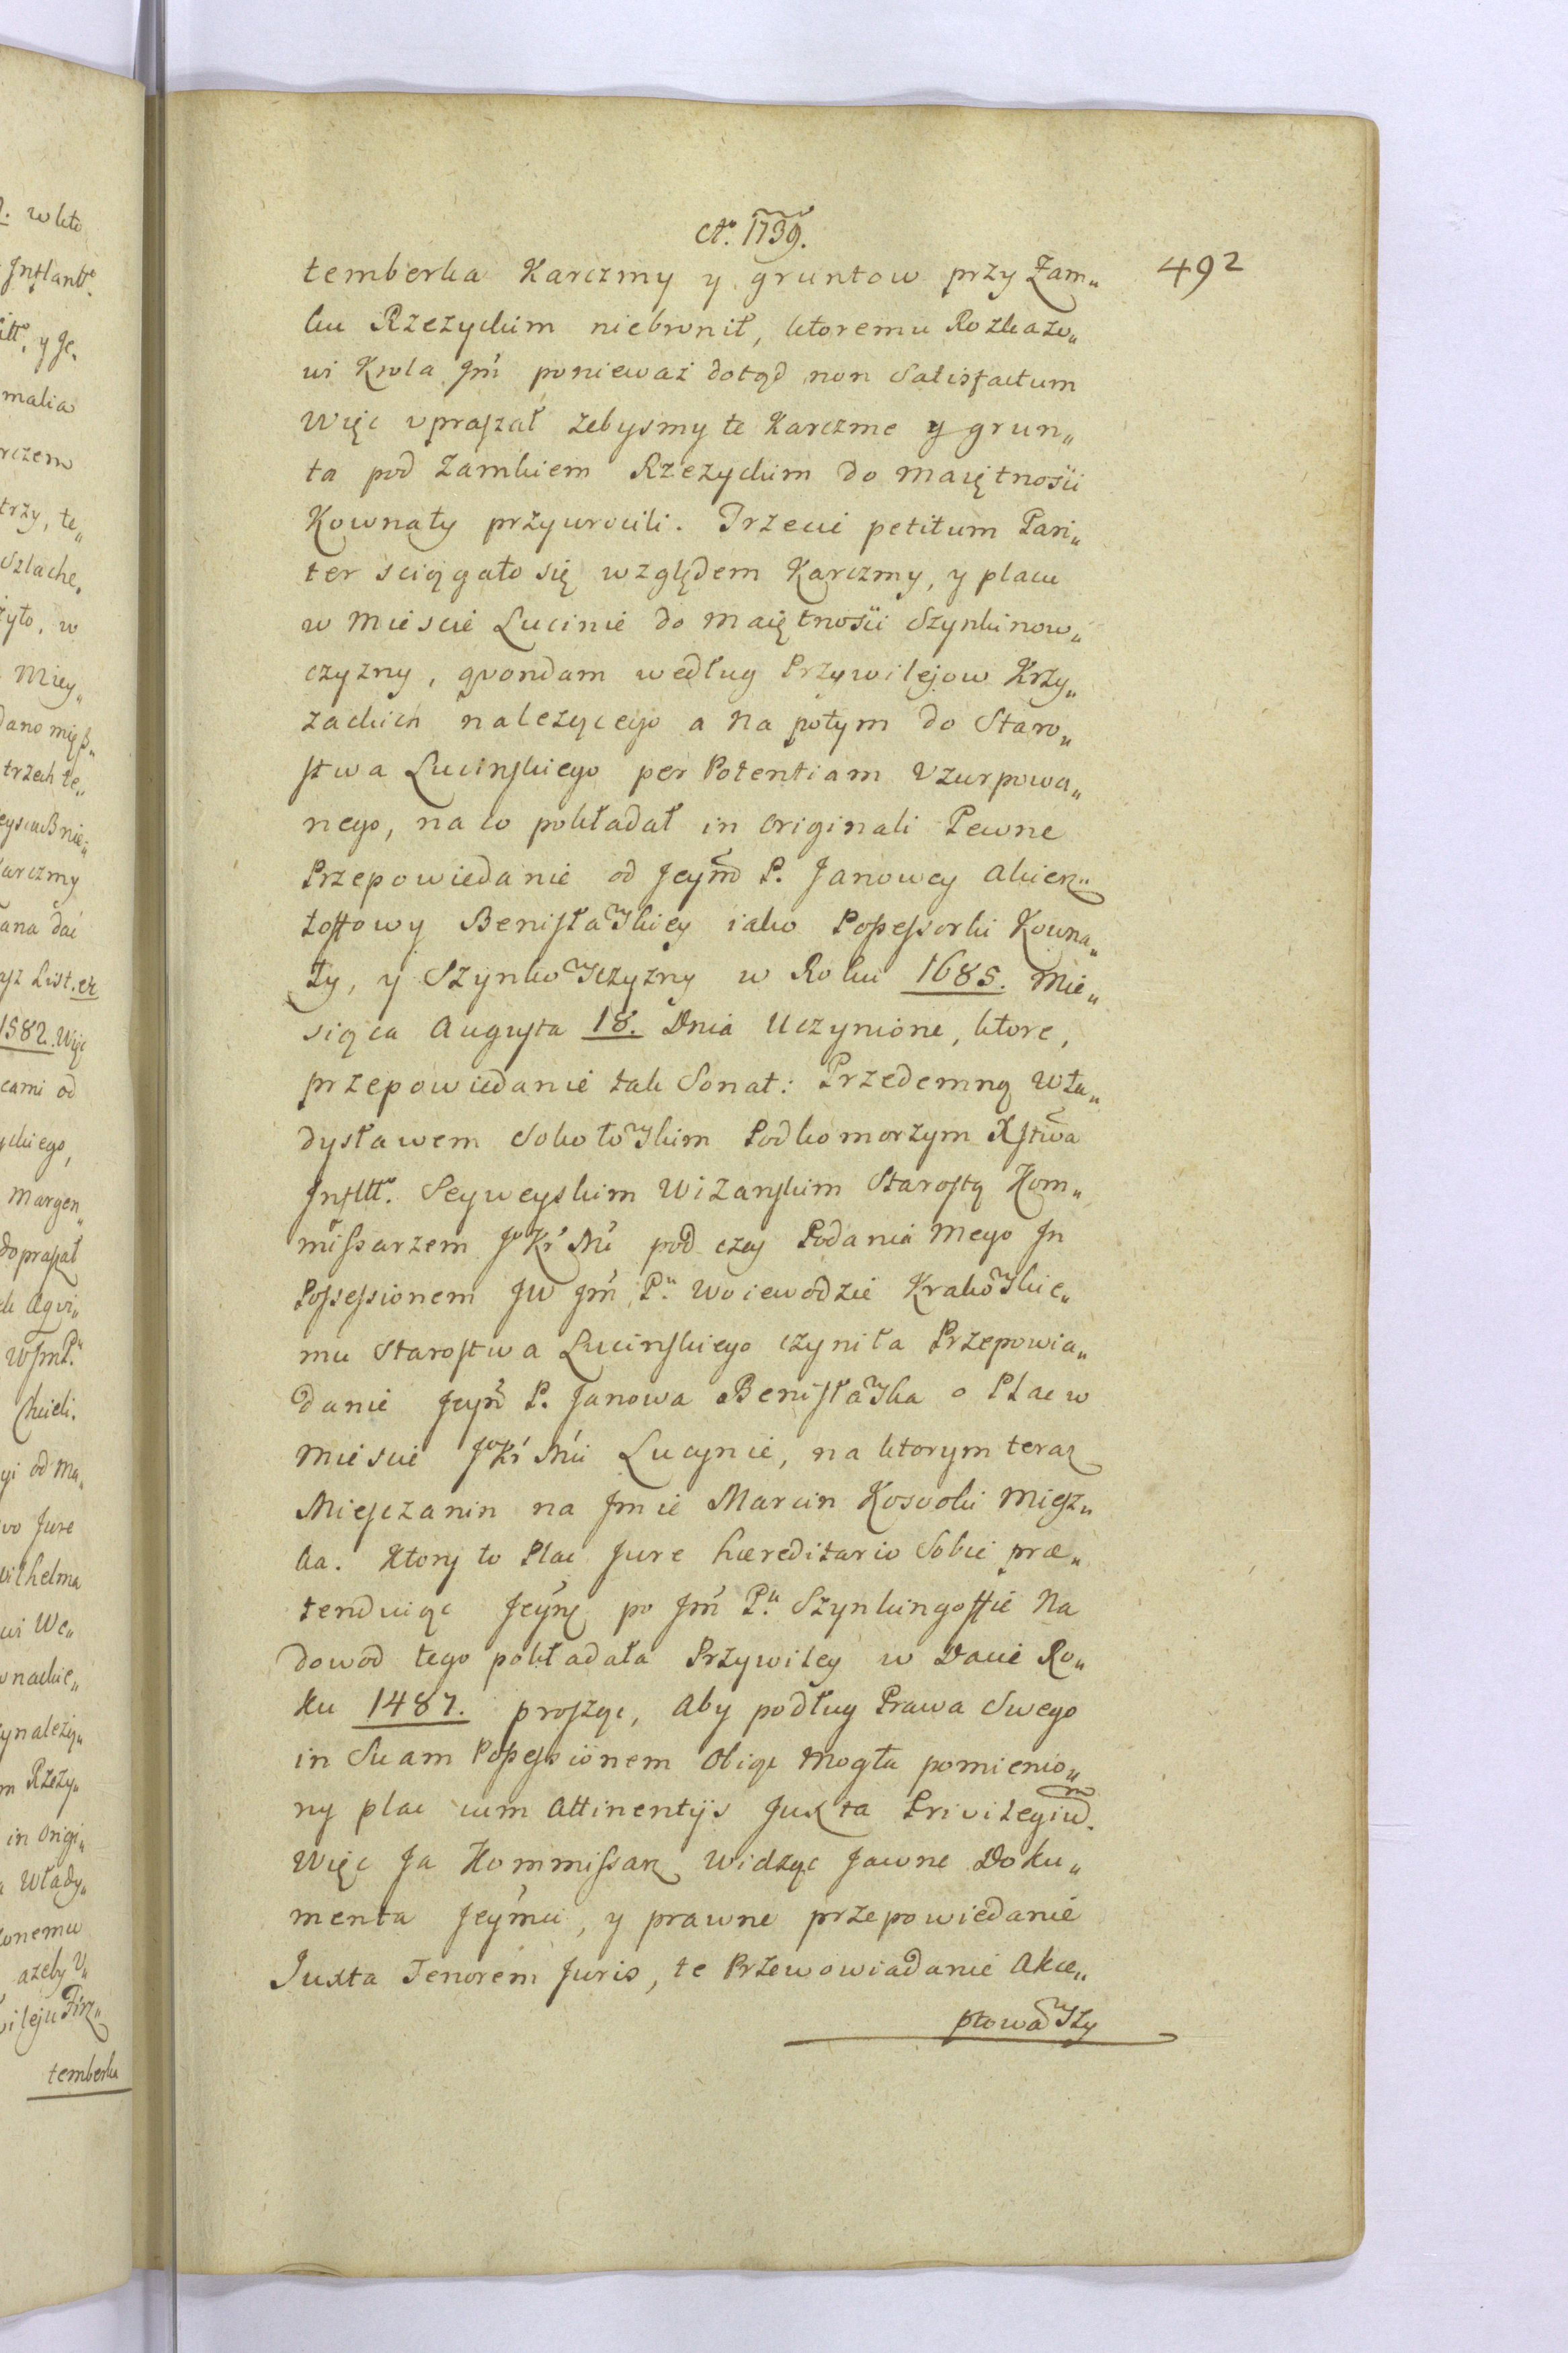 Ao. 1739.
492
temberka Karczmy y gruntow przy Zam„
ku Rzezyckim niebronił, ktoremu Rozkazo„
wi Krola Jm̃ ponieważ dotąd non Satisfactum
Więc vpraszał zebysmy te Karczme y grun„
ta pod Zamkiem Rzezyckim do maiętnosci
Kownaty przywrocili. Trzecie petitum Pari„
ter sciągało się względem Karczmy, y placu
w Miescie Lucinie do maiętnosci Szynkinow„
czyzny, qvondam według Przywilejow Krzy„
zackich nalezącego a na potym do Staro„
stwa Lucinskiego per Potentiam Vzurpowa„
nego, na co pokładał in Originali Pewne
Przepowiedanie od Jeym̃ P. Janowey Akier„
toffowy Benisławskiey iako Possessorki Kowna„
ty, y Szynkowszyzny w Roku 1685. Mie„
siąca Augusta 18. Dnia Uczynione, ktore,
przepowiedanie tak Sonat: Przedemną Wła„
dysławem Sokołowskim Podkomorzym Xstwa
Infltt. Seyweyskim Wizanskim Starostą Kom„
missarzem Jo Kr Mci pod czas Podania Mego In
Possessionem JW Jm̃ Pu. Woiewodzie Krakowskie„
mu Starostwa Lucinskiego czyniła Przepowia„
danie Jeym̃ P. Janowa Benisławska o Plac w
Miescie Jo Kr Mci Lucynie, na ktorym teraz
Miesczanin na Jmie Marcin Kosvoki miesz„
ka. Ktory to Plac Jure hæreditario Sobie præ„
tenduiąc Jeym̃ po Jm̃ Pu. Szynkingoffie Na
dowod tego pokładała Przywiley w Dacie Ro„
ku 1487. prosząc, Aby podług Prawa Swego
in Suam Possessionem Obiąc Mogła pomienio„
ny plac cum Attinentijs Juxta Privilegium.
Więc Ja Kommissarz Widząc Jawne Doku„
menta Jeym̃ci, y prawne przepowiedanie
Juxta Tenorem Juris, te Przewowiadanie Akce„
ptowawszy